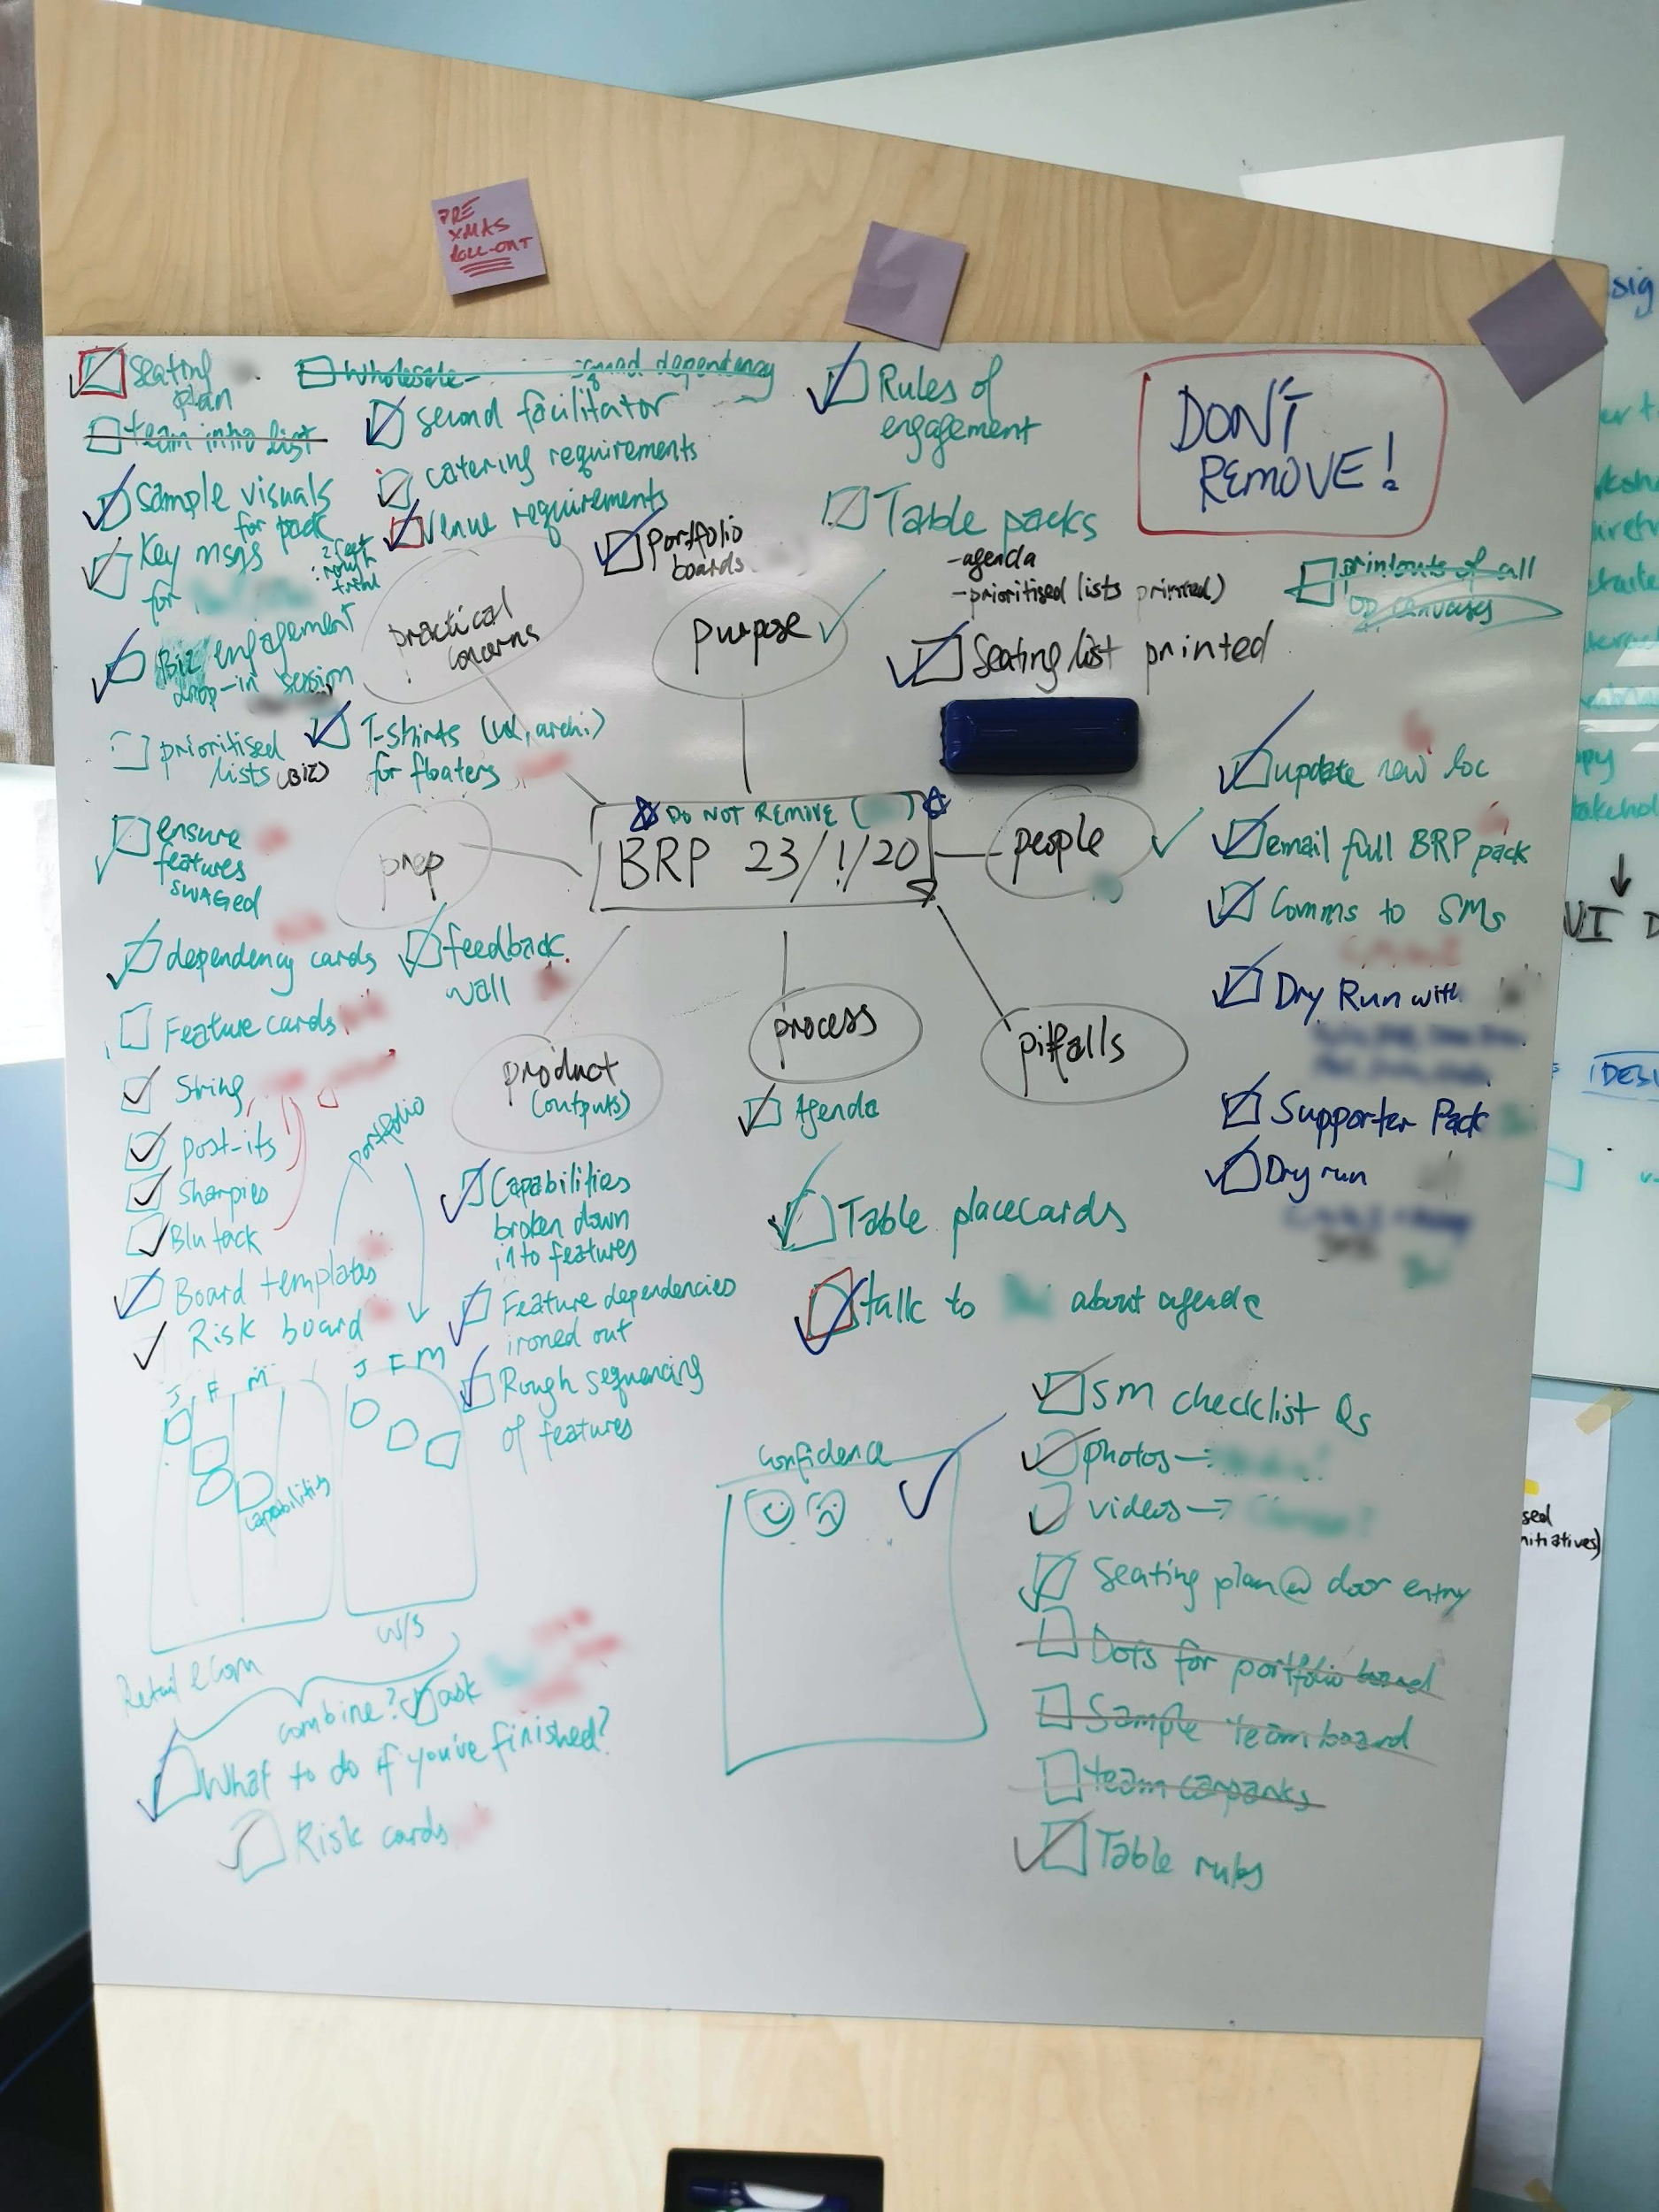 PRE
XMAS
ROLL-OUT
Seating
plan
Wholesale
dependency
team intro list
second facilitator
catering requirements
Venue requirements
Sample visuals
for pack
Key msgs
for
Biz engagement
drop-in session
Portfolio
boards
Rules of
engagement
DON'T
REMOVE!
Table packs
-agenda
-prioritised lists printed)
printouts of all
canvases
Seating list printed
practical
concerns
purpose
prioritised
lists (BIZ)
T-shirts (UX, archi)
for floaters
ensure
features
SWAGed
prep
DO NOT REMOVE (
)
BRP 23/!/20
people
update new loc
email full BRP pack
Comms to SMs
Dry Run with
Supporter Pack
Dry run
dependency cards
feedback
wall
Feature cards
String
Post-its
Sharpies
Blu tack
Board templates
Risk board
portfolio
product
(outputs)
process
pitfalls
Agenda
Capabilities
broken down
into features
Feature dependencies
ironed out
Rough sequencing
of features
Table placecards
talk to
about agenda
J F M
J F M
capabilities
Retail eCom
W/S
combine? ask
What to do if you've finished?
Risk cards
Confidence
SM checklist Qs
photos→
videos→
Seating plan @ door entry
Dots for portfolio board
Sample team board
team carparks
Table rules
sig
VI D
sed
nitiatives)